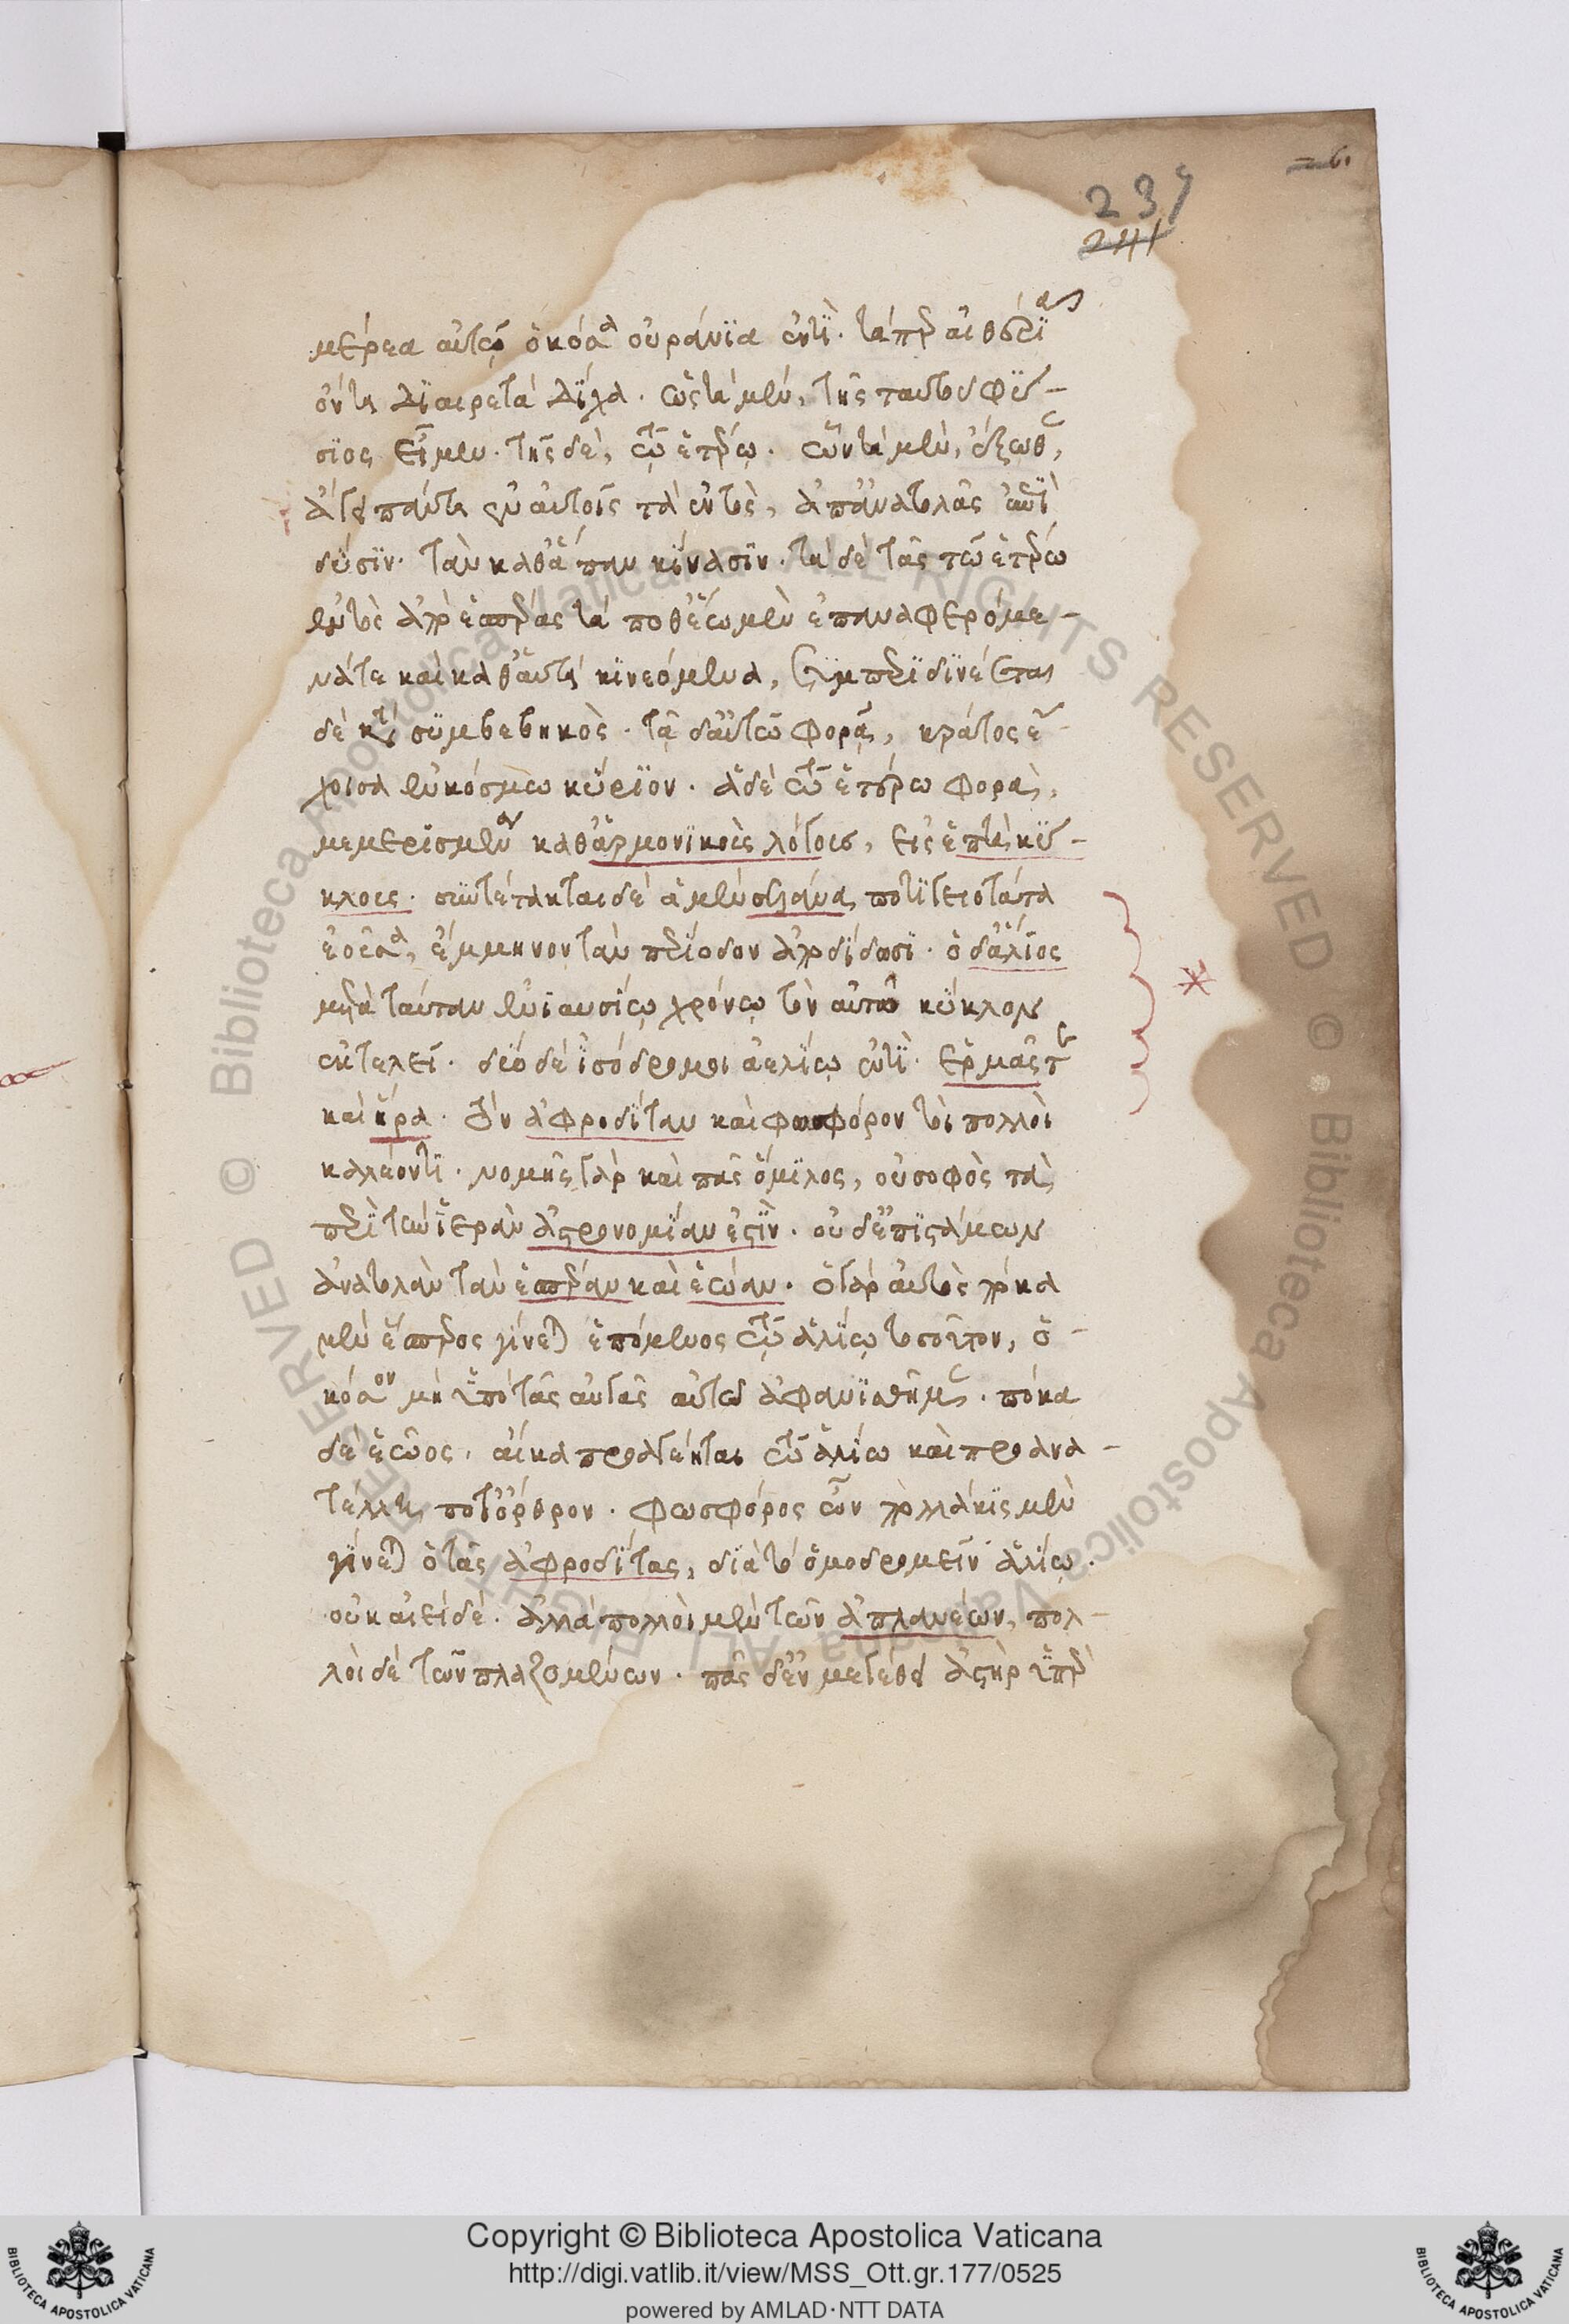 239
241
μέρεα αὐτῶ ὁκόσα οὐράνϊα ἐντὶ. τάπερ αἰθέρϊα
ὄντα διαιρετὰ δίχα. ὥς τὰ μὲν, τῆς ταυτοῦ φύ-
σϊος εἶμεν. τῆς δὲ, τῶ ἑτέρω. ὧν τὰ μὲν, ἔξωθεν,
ἄγει πάντα ἐν αὐτοῖς τὰ ἐντὸς, ἀπ' ἀνατολᾶς ἐπὶ
δύσϊν. τὰν καθ' ἅπαν κίνασϊν. τὰ δὲ τᾶς τῶ ἑτέρω
ἐντὸς ἀπὸ ἑσπέρας τὰ ποθ' ἕω μὲν ἐπαναφερόμε-
νά τε καὶ καθ' αὑτὰ κϊνεόμενα, συμπερϊδϊνέεται
δὲ κατὰ συμβεβηκὸς. τᾷ δ' αὐτῶ φορᾷ, κράτος ἔ-
χοισα ἐν κόσμω κύρϊον. ἁ δὲ τῶ ἑτέρω φορὰ,
μεμερϊσμέναν καθ' ἁρμονϊκοὺς λόγοις, εἰς ἑπτὰ κύ-
κλοις. συντέτακται δὲ ἁ μὲν σελάνα ποτϊγειοτάτα
ἐοῖσα, ἔμμηνον τὰν περίοδον ἀποδίδωσϊ. ὁ δ' ἅλϊος
μετὰ ταύταν ἐνϊαυσίω χρόνω τὸν αὐτῶ κύκλον
ἐκτελεῖ. δύο δὲ ἰσόδρομοι ἀελίω ἐντὶ. ἑρμᾶς τε
καὶ ἥρα. τὰν ἀφροδίταν καὶ φωσφόρον τοὶ πολλοὶ
καλέοντϊ. νομῆς γὰρ καὶ πᾶς ὅμϊλος, οὐ σοφὸς τὰ
περϊ τὰν ἱερὰν ἀστρονομίαν ἐστὶν. οὐδ' ἐπϊστάμων
ἀνατολὰν τὰν ἑσπέραν καὶ ἑώαν. ὁ γὰρ αὐτὸς ποκὰ
μὲν ἕσπερος γίνεται ἑπόμενος τῶ ἁλίω τοσοῦτον, ὁ-
κόσον μὴ ὑπὸ τᾶς αὐγᾶς αὐτοῦ ἀφανϊσθῆμεν. πόκα
δὲ ἑῶος. αἴκα προαγέηται τῶ ἁλίω καὶ προανα-
τέλλῃ ποτ' ὄρθρον. φωσφόρος ὦν πολλάκϊς μὲν
γίνεται ὁ τᾶς ἀφροδίτας, διὰ τὸ ὁμοδρομεῖν ἁλίω.
οὐκ αἰεὶ δέ. ἀλλὰ πολλοὶ μὲν τῶν ἀπλανέων, πολ-
λοὶ δὲ τῶν πλαζομένων. πᾶς δ' ἐν μεγέθει ἀστὴρ ὑπὲρ
Copyright © Biblioteca Apostolica Vaticana
http://digi.vatlib.it/view/MSS_Ott.gr.177/0525
powered by AMLAD·NTT DATA
BIBLIOTECA APOSTOLICA VATICANA
BIBLIOTECA APOSTOLICA VATICANA